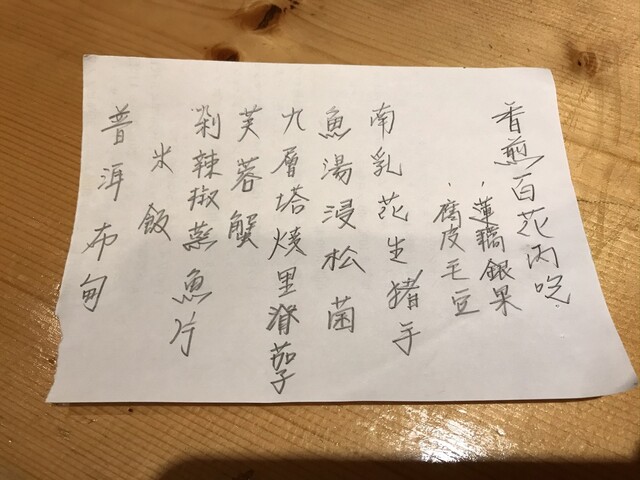 香煎百花丙吃
、蓮藕銀果
、腐皮毛豆
南乳花生猪手
魚湯浸松菌
九層塔燒里脊茄子
芙蓉蟹
剁辣椒蒸魚片
米飯
普洱布甸